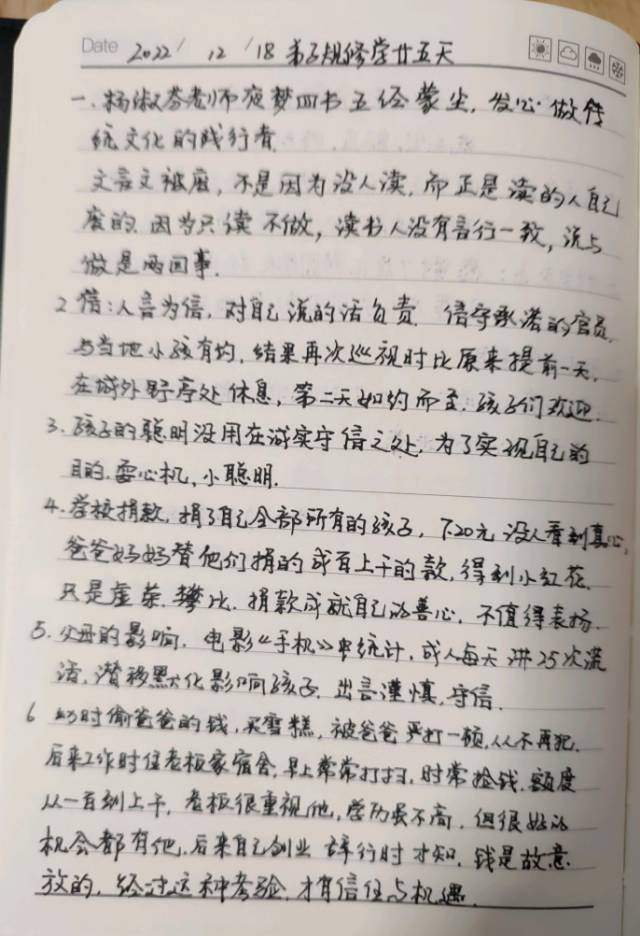 Date 2022/ 12 /18 弟子规修学廿五天
一. 杨淑芬老师夜梦四书五经蒙尘, 发心做传
统文化的践行者
文言文被废, 不是因为没人读, 而正是读的人自己
废的. 因为只读不做, 读书人没有言行一致, 说与
做是两回事.
2 信: 人言为信, 对自己说的话负责. 信守承诺的官员,
与当地小孩有约, 结果再次巡视时比原来提前一天,
在城外野亭处休息, 第二天如约而至. 孩子们欢迎.
3. 孩子的聪明没用在诚实守信之处, 为了实现自己的
目的. 耍心机, 小聪明.
4. 学校捐款, 捐了自己全部所有的孩子, 下20元 没人看到真心,
爸爸妈妈替他们捐的 成百上千的款, 得到小红花.
只是虚荣. 攀比. 捐款成就自己的善心, 不值得表扬.
5. 父母的影响. 电影《手机》中统计, 成人每天讲25次谎
话, 潜移默化影响孩子. 出言谨慎, 守信.
6 幼时偷爸爸的钱, 买雪糕, 被爸爸严打一顿, 从不再犯.
后来工作时住老板家宿舍, 早上常常打扫, 时常捡钱. 额度
从一百到上千, 老板很重视他, 学历虽不高, 但很好的
机会都有他. 后来自己创业 辞行时才知, 钱是故意
放的, 经过这种考验. 才有信任与机遇.